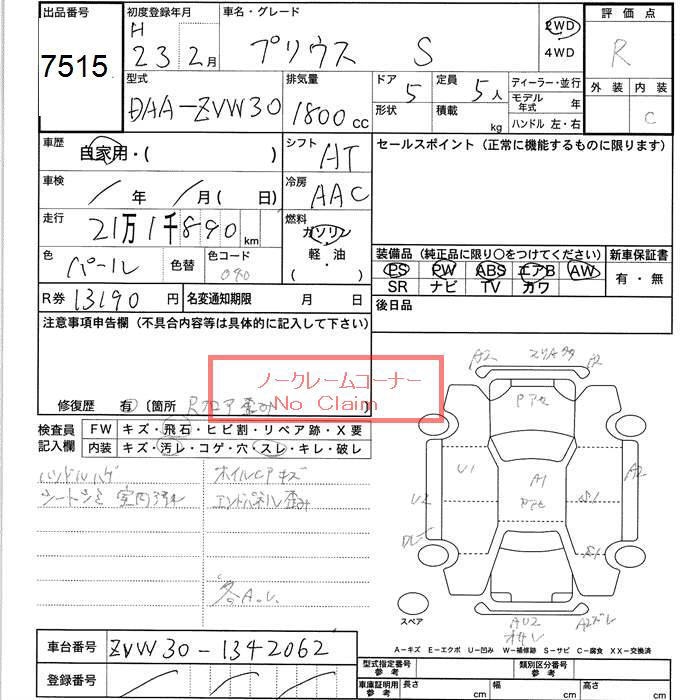 出品番号 初度登録年月 車名・グレード 評価点
7515 H 23 2月 プリウス S 2WD 4WD R
型式 排気量 ドア 定員 ディーラー・並行 外装 内装
DAA-ZVW30 1800cc 5 5人 モデル年式 年 C
形状 積載 kg ハンドル 左・右
車歴 自家用・( ) シフト AT セールスポイント(正常に機能するものに限ります)
車検 年 月( 日) 冷房 AAC
走行 21万1千890km 燃料 ガソリン 軽・油 ( )
色 パール 色替 色コード 070 装備品(純正品に限り〇をつけてください) 新車保証書
PS PW ABS エアB AW 有・無
SR ナビ TV カワ
R券 13190円 名変通知期限 月 日 後日品
注意事項申告欄(不具合内容等は具体的に記入して下さい)
ノークレームコーナー
No Claim
修復歴 有(箇所 Rフロア歪み
検査員記入欄 FW キズ・飛石・ヒビ割・リペア跡・X要
内装 キズ・汚レ・コゲ・穴・スレ・キレ・破レ
ハンドルハゲ ホイルCPキズ
シートシミ 室内汚れ エンドパネル歪み
各A.U.
A2
Pアセ
U1 A1 A2
U2 S1
S1
スペア AU2 A2ズレ
A-キズ E-エクボ U-凹み W-補修跡 S-サビ C-腐食 XX-交換済
車台番号 ZVW30-1342062
登録番号
型式指定番号 参考 類別区分番号 参考
車庫証明用 参考 長さ cm 幅 cm 高さ cm